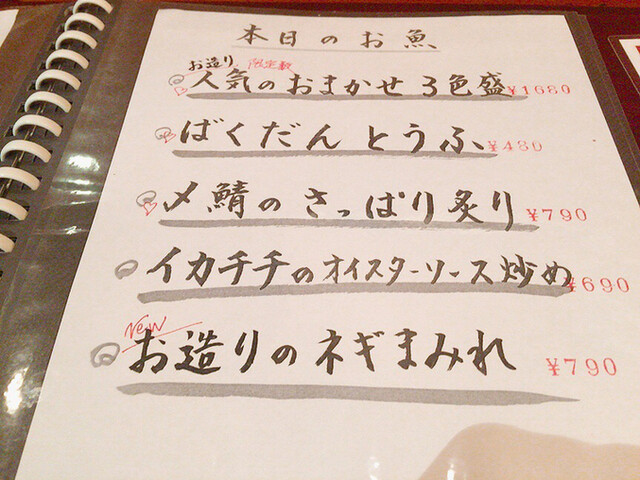 本日のお魚
お造り 限定数
人気のおまかせ3色盛 ¥1680
ばくだんとうふ ¥480
〆鯖のさっぱり炙り ¥790
イカチチのオイスターソース炒め ¥690
New
お造りのネギまみれ ¥790